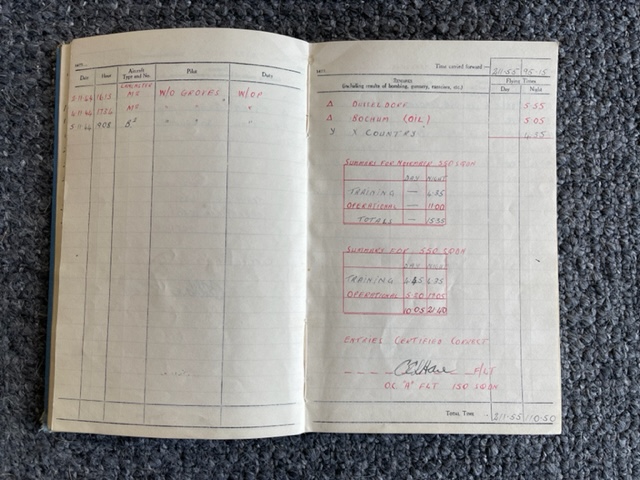 Date Hour Aircraft Type and No. Pilot Duty
2.11.44 1615 LANCASTER M E W/O GROVES W/OP
4.11.44 1724 " " "
5.11.44 " "
Time carried forward :— 211.55 95.15
REMARKS
(including results of bombing, gunnery, exercises, etc.)
Flying Times
Day Night
Δ DUSSELDORF 5.55
Δ BOCHUM (OIL) 5.05
Y X COUNTRY 4.35
SUMMARY FOR NOVEMBER 550 SQDN
DAY NIGHT
TRAINING — 4.35
OPERATIONAL — 11.00
TOTALS — 15.35
SUMMARY FOR 550 SQDN
DAY NIGHT
TRAINING 4.45 4.35
OPERATIONAL 5.20 17.05
10.05 21.40
ENTRIES CERTIFIED CORRECT
F/LT
OC "A" FLT 150 SQDN.
TOTAL TIME 211.55 110.50